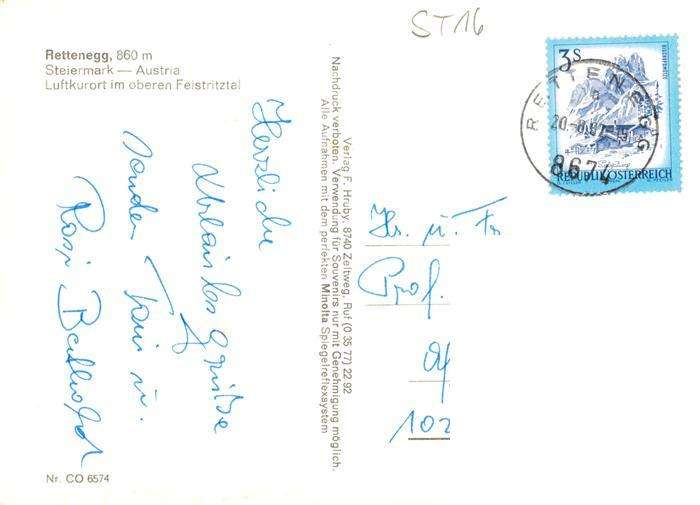 ST16
Rettenegg, 860 m
Steiermark — Austria
Luftkurort im oberen Feistritztal
Herzliche
Urlaubsgrüße
senden
u.
Rosi
Nr. CO 6574
Verlag F. Hruby, 8740 Zeltweg, Ruf (0 35 77) 22 92
Nachdruck verboten. Verwendung für Souvenirs nur mit Genehmigung möglich.
Alle Aufnahmen mit dem perfekten Minolta Spiegelreflexsystem
3S
REPUBLIK ÖSTERREICH
RETTENEGG
8674
Hr. u. Fr
Prof.
102